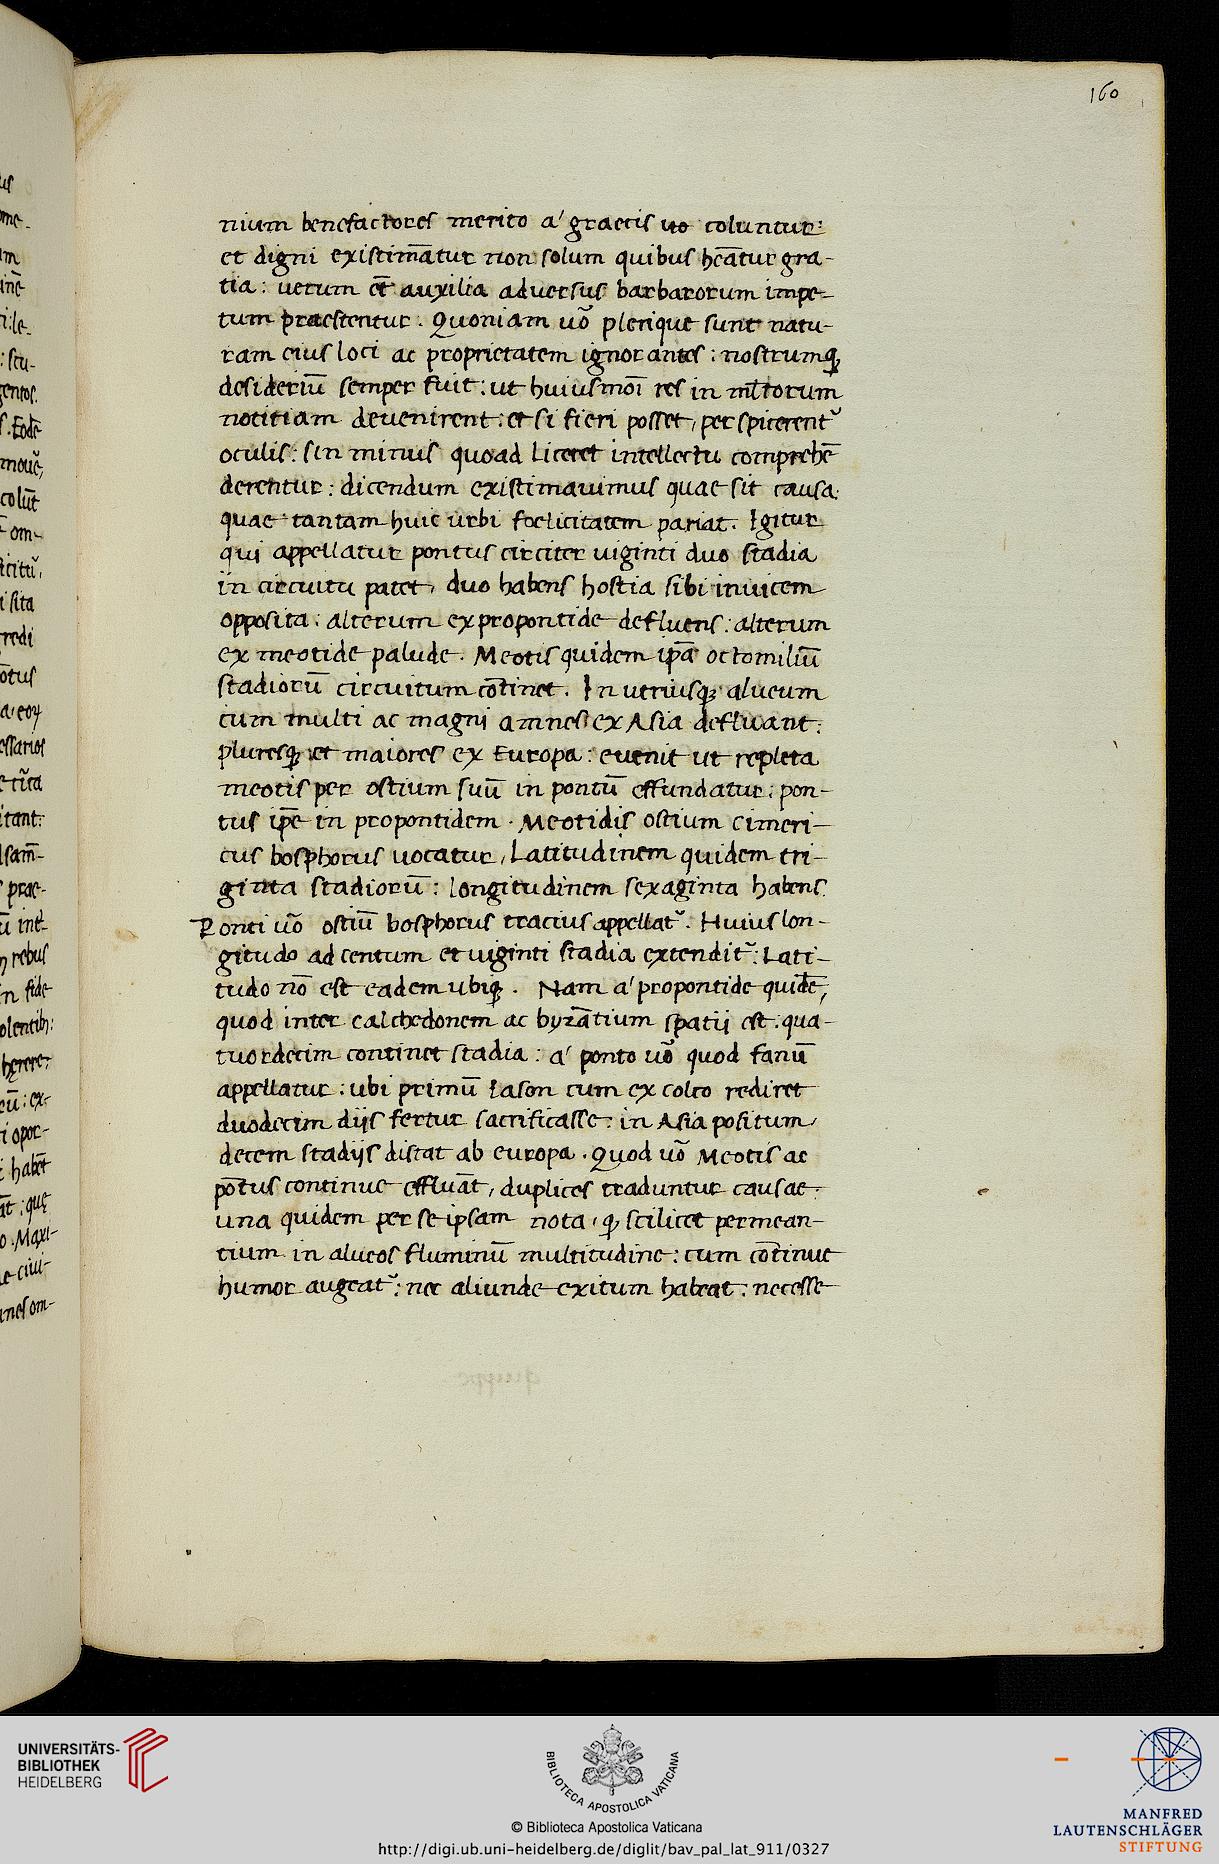 160
nium benefactores merito a' graecis uo coluntur:
et digni existimātur non solum quibus hēatur gra-
tia: uerum et̄ auxilia aduersus barbarorum impe-
tum praestentur. Quoniam uō plerique sunt natu-
ram eius loci ac proprietatem ignorantes: nostrumq;
desideriū semper fuit: ut huiusmoī res in ml̄torum
notitiam deuenirent: et si fieri posset, perspicerent᷑
oculis: sin minus quoad liceret intellectu comprehē
derentur: dicendum existimauimus quae sit causa:
quae tantam huic urbi foelicitatem pariat. Igitur
qui appellatur pontus circiter uiginti duo stadia
in circuitu patet, duo habens hostia sibi inuicem
opposita: alterum expropontide defluens: alterum
ex meotide palude. Meotis quidem ipā octomiliū
stadiorū circuitum cōtinet. In utriusq; alueum
cum multi ac magni amnes ex Asia defluant:
pluresq; et maiores ex Europa: euenit ut repleta
meotis per ostium suū in pontū effundatur: pon-
tus ip̄e in propontidem. Meotidis ostium cimeri-
cus bosphorus uocatur, Latitudinem quidem tri-
ginta stadiorū: longitudinem sexaginta habens.
Ponti uō ostiū bosphorus tracius appellat᷑. Huius lon-
gitudo ad centum et uiginti stadia extendit᷑: Lati-
tudo nō est eadem ubiq;. Nam a' propontide quidē,
quod inter calchedonem ac byzātium spatij est: qua-
tuordecim continet stadia: a' ponto uō quod fanū
appellatur: ubi primū Iason cum ex colco rediret
duodecim dijs fertur sacrificasse: in Asia positum,
decem stadijs distat ab europa. Quod uō Meotis ac
pōtus continue effluāt, duplices traduntur causae:
una quidem per se ipsam nota, q; scilicet permean-
tium in alueos fluminū multitudine: cum cōtinue
humor augeat᷑: nec aliunde exitum habeat: necesse
UNIVERSITÄTS-
BIBLIOTHEK
HEIDELBERG
BIBLIOTECA APOSTOLICA VATICANA
© Biblioteca Apostolica Vaticana
http://digi.ub.uni-heidelberg.de/diglit/bav_pal_lat_911/0327
MANFRED
LAUTENSCHLÄGER
STIFTUNG